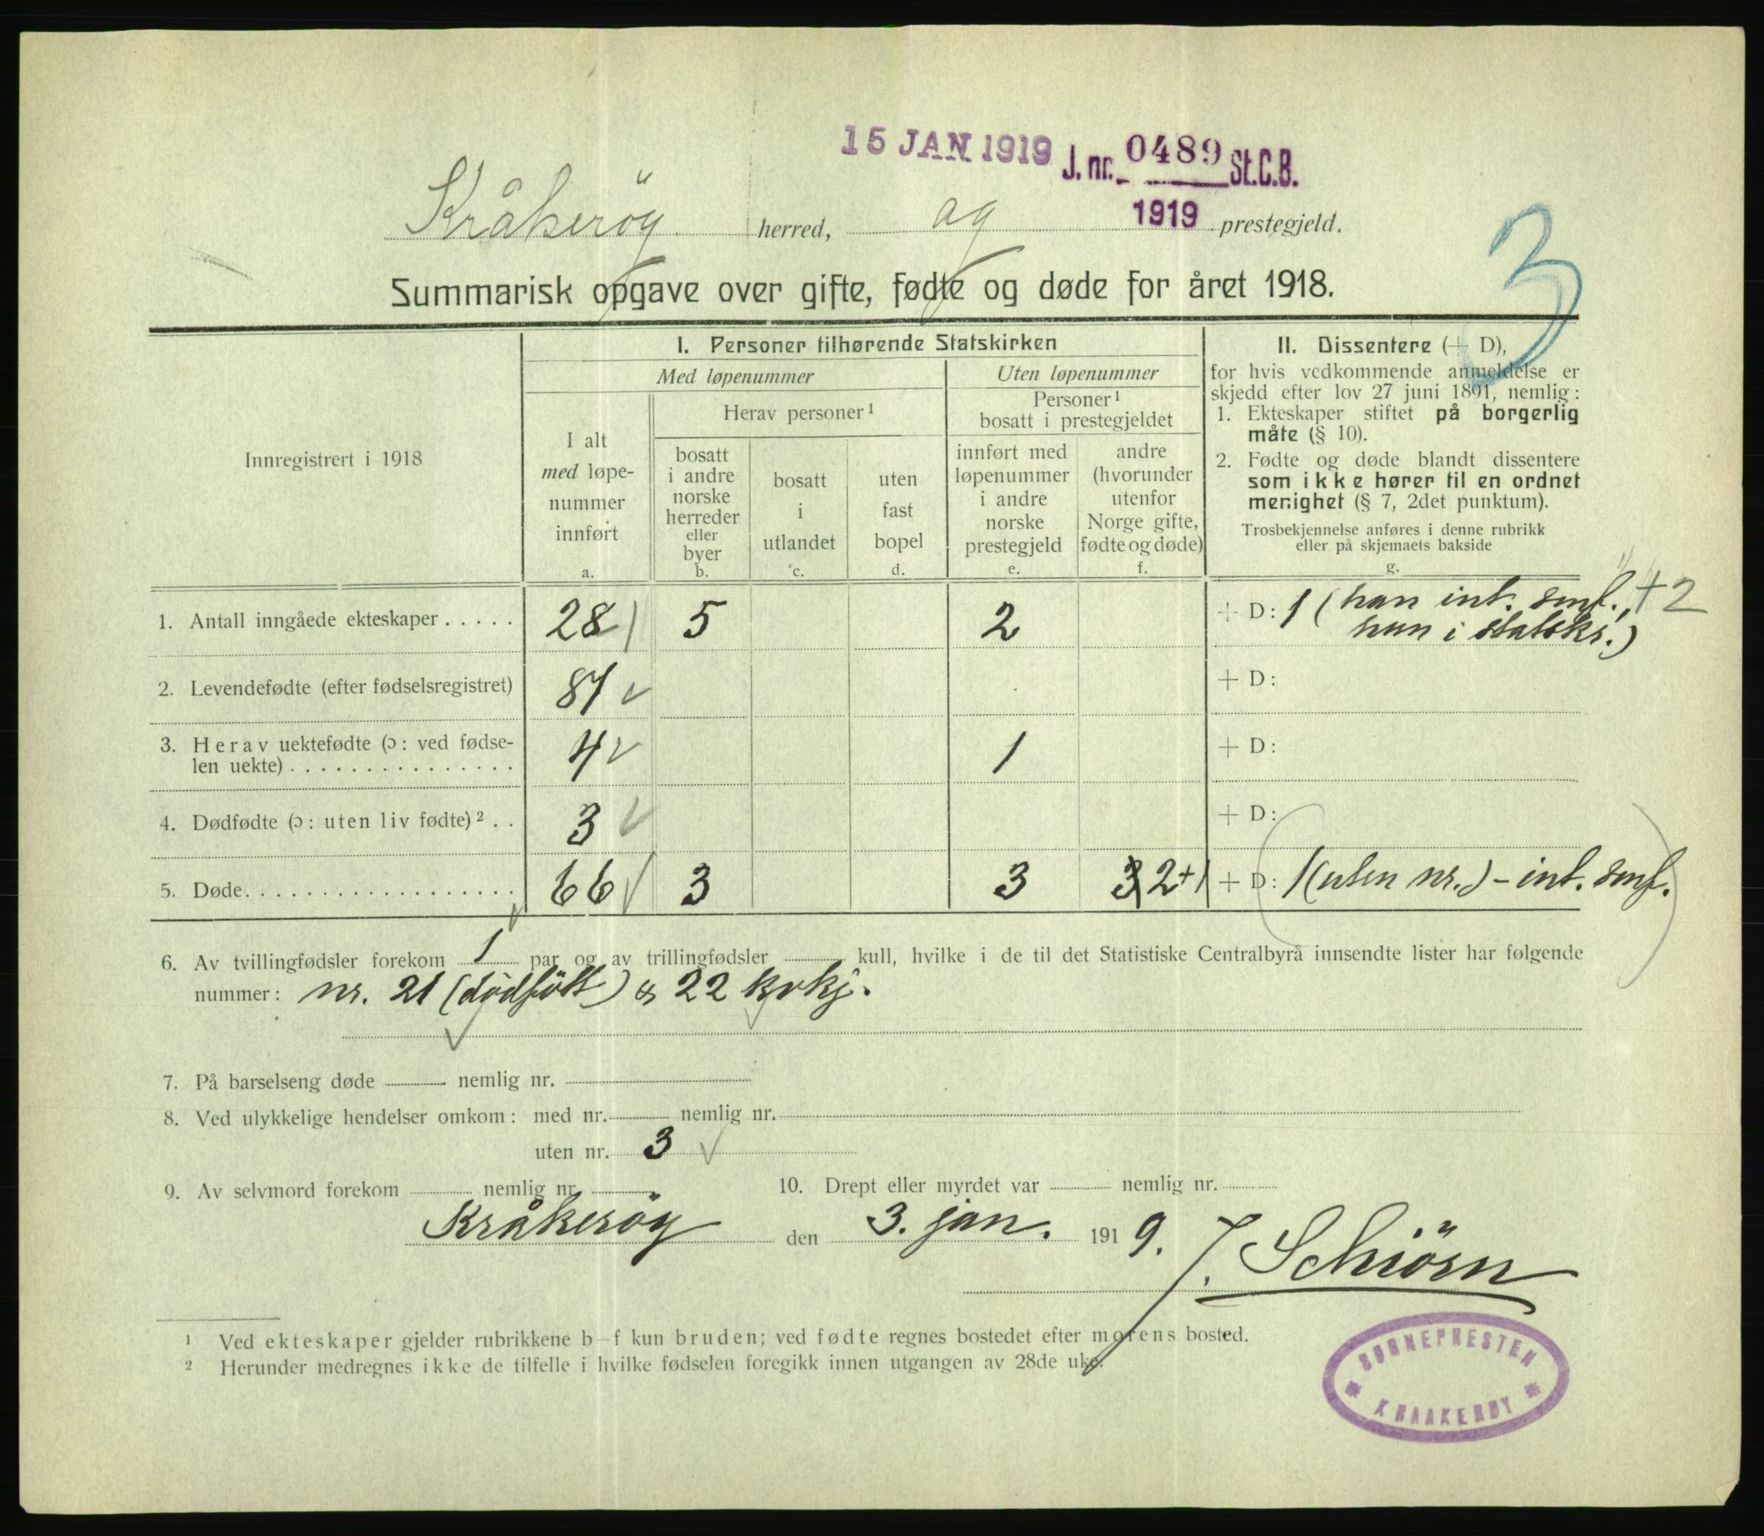 15 JAN 1919 J. nr. 0489 St.C.B.
1919
3
Kråkeröy herred, og prestegjeld.
Summarisk opgave over gifte, fødte og døde for året 1918.
Innregistrert i 1918
I. Personer tilhørende Statskirken
Med løpenummer
Uten løpenummer
I alt
med løpe-
nummer
innført
a.
Herav personer ¹
bosatt
i andre
norske
herreder
eller
byer
b.
bosatt
i
utlandet
c.
uten
fast
bopel
d.
Personer ¹
bosatt i prestegjeldet
innført med
løpenummer
i andre
norske
prestegjeld
e.
andre
(hvorunder
utenfor
Norge gifte,
fødte og døde)
f.
II. Dissentere (+ D),
for hvis vedkommende anmeldelse er
skjedd efter lov 27 juni 1891, nemlig:
1. Ekteskaper stiftet på borgerlig
måte (§ 10).
2. Fødte og døde blandt dissentere
som ikke hører til en ordnet
menighet (§ 7, 2det punktum).
Trosbekjennelse anføres i denne rubrikk
eller på skjemaets bakside
g.
1. Antall inngåede ekteskaper ..... 28 5 2 + D: 1 (han int. smf., +2
hun i statsks.)
2. Levendefødte (efter fødselsregistret) 87 + D:
3. Herav uektefødte (ɔ: ved fødse-
len uekte) ............... 4 1 + D:
4. Dødfødte (ɔ: uten liv fødte) ² . . 3 + D:
5. Døde .................. 66 3 3 3 2+1 + D: 1 (uten nr.) - int. smf.
6. Av tvillingfødsler forekom 1 par og av trillingfødsler kull, hvilke i de til det Statistiske Centralbyrå innsendte lister har følgende
nummer: nr. 21 (dödfött) & 22 kvkj.
7. På barselseng døde nemlig nr.
8. Ved ulykkelige hendelser omkom: med nr. nemlig nr.
uten nr. 3
9. Av selvmord forekom nemlig nr. 10. Drept eller myrdet var nemlig nr.
Kråkeröy den 3. jan. 1919. J. Schiörn
¹ Ved ekteskaper gjelder rubrikkene b–f kun bruden; ved fødte regnes bostedet efter morens bosted.
² Herunder medregnes ikke de tilfelle i hvilke fødselen foregikk innen utgangen av 28de uke.
SOGNEPRESTEN
* KRAAKERØY *